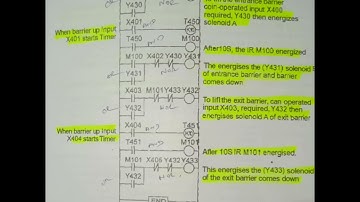 Y430
to lift the entrance barrier
coin-operated input X400
required, Y430 then energizes
solenoid A
When barrier up Input
X401 starts Timer
X401
T450
T450
M100
After10S, the IR M100 energized
M100 X402 Y430 Y431
Y431
The energises the (Y431) solenoid B
of entrance barrier and barrier
comes down
X403 M101 Y433 Y432
Y432
To lift the exit barrier, can operated
input X403, required, Y432 then
energises solenoid A of exit barrier
When barrier up Input
X404 starts Timer
X404
T451
T451
M101
After 10S IR M101 energised.
M101 X405 Y432 Y433
Y432
This energises the (Y433) solenoid
of the exit barrier comes down
END